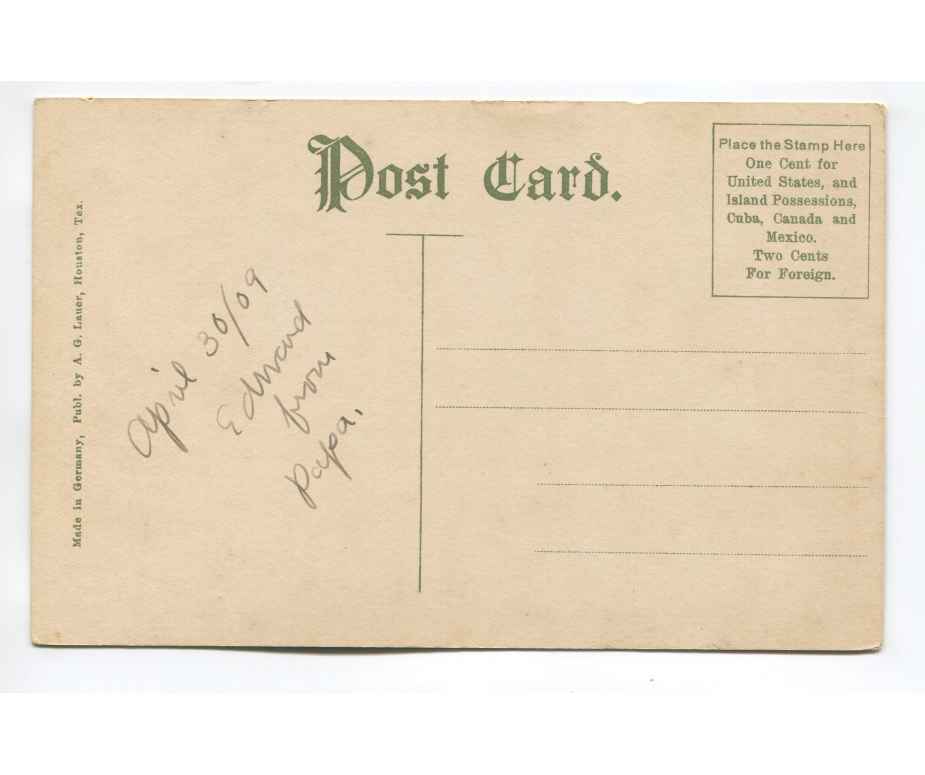 Post Card.
Place the Stamp Here
One Cent for
United States, and
Island Possessions,
Cuba, Canada and
Mexico.
Two Cents
For Foreign.
Made in Germany, Publ. by A. G. Lauer, Houston, Tex.
April 30/09
Edward
from
Papa.